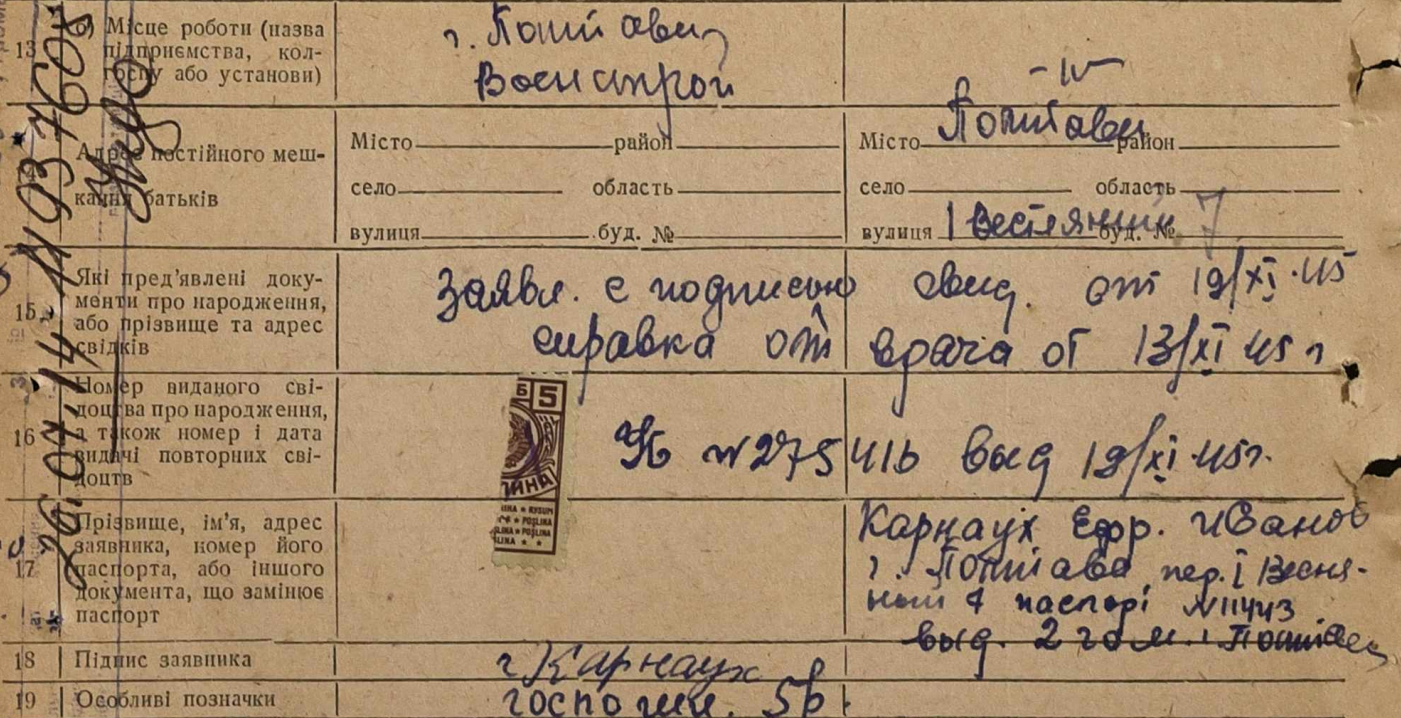 13 б) Місце роботи (назва
підприємства, кол-
госпу або установи)
г. Полтава
Военстрой
-"-
14 Адрес постійного меш-
кання батьків
Місто район
село область
вулиця буд. №
Місто Полтава район
село область
вулиця I буд. № 7
15 Які пред'явлені доку-
менти про народження,
або прізвище та адрес
свідків
Заявл. с подписью свид. от 19/XI-45
справка от врача от 13/XI 45 г
16 Номер виданого сві-
доцтва про народження,
а також номер і дата
видачі повторних сві-
доцтв
№ 275416 выд 19/XI-45г.
Б 5
ЙНА
17 Прізвище, ім'я, адрес
заявника, номер його
паспорта, або іншого
документа, що замінює
паспорт
Карнаух Ефр. Иванов
г. Полтава, пер. I Весня-
ный 7 паспорт №11443
выд. 2 г о.м. г. Полтавы
18 Підпис заявника
Карнаух
19 Особливі позначки
госпошл. 5р.
26.04.14